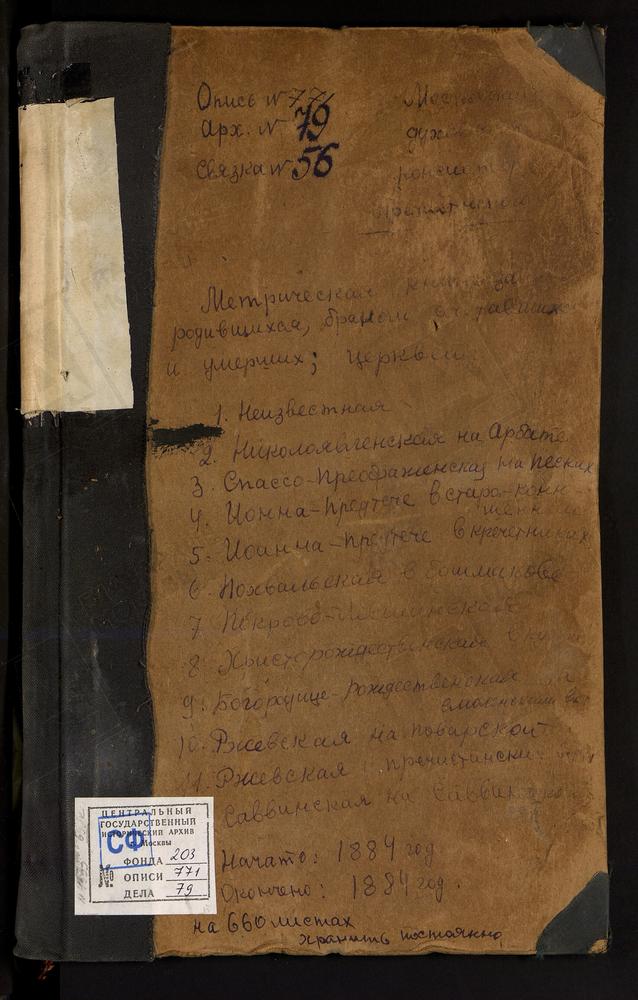 Опись № 771
Арх. № 79
Связка № 56
Московская
духовная
Метрическая книга за
родившихся,
и умерших; церквей
1. Неизвестная
2. Николоявленская на Арбате
3. Спассо-Преображенская на Песках
4. Иоанна-Предтече в старо-конн-
5. Иоанна-Предтече в кречетниках
6. Похвальская в башмакове
7
8
9. Богородице-рождественская
10. Ржевская на поварской
11. Ржевская пречистински
Саввинская на Саввинско
Начато: 1884 год
Окончено: 1884 год.
на 660 листах
хранить постоянно
ЦЕНТРАЛЬНЫЙ
ГОСУДАРСТВЕННЫЙ
ИСТОРИЧЕСКИЙ АРХИВ
г. Москвы
СФ
№ ФОНДА 203
ОПИСИ 771
ДЕЛА 79